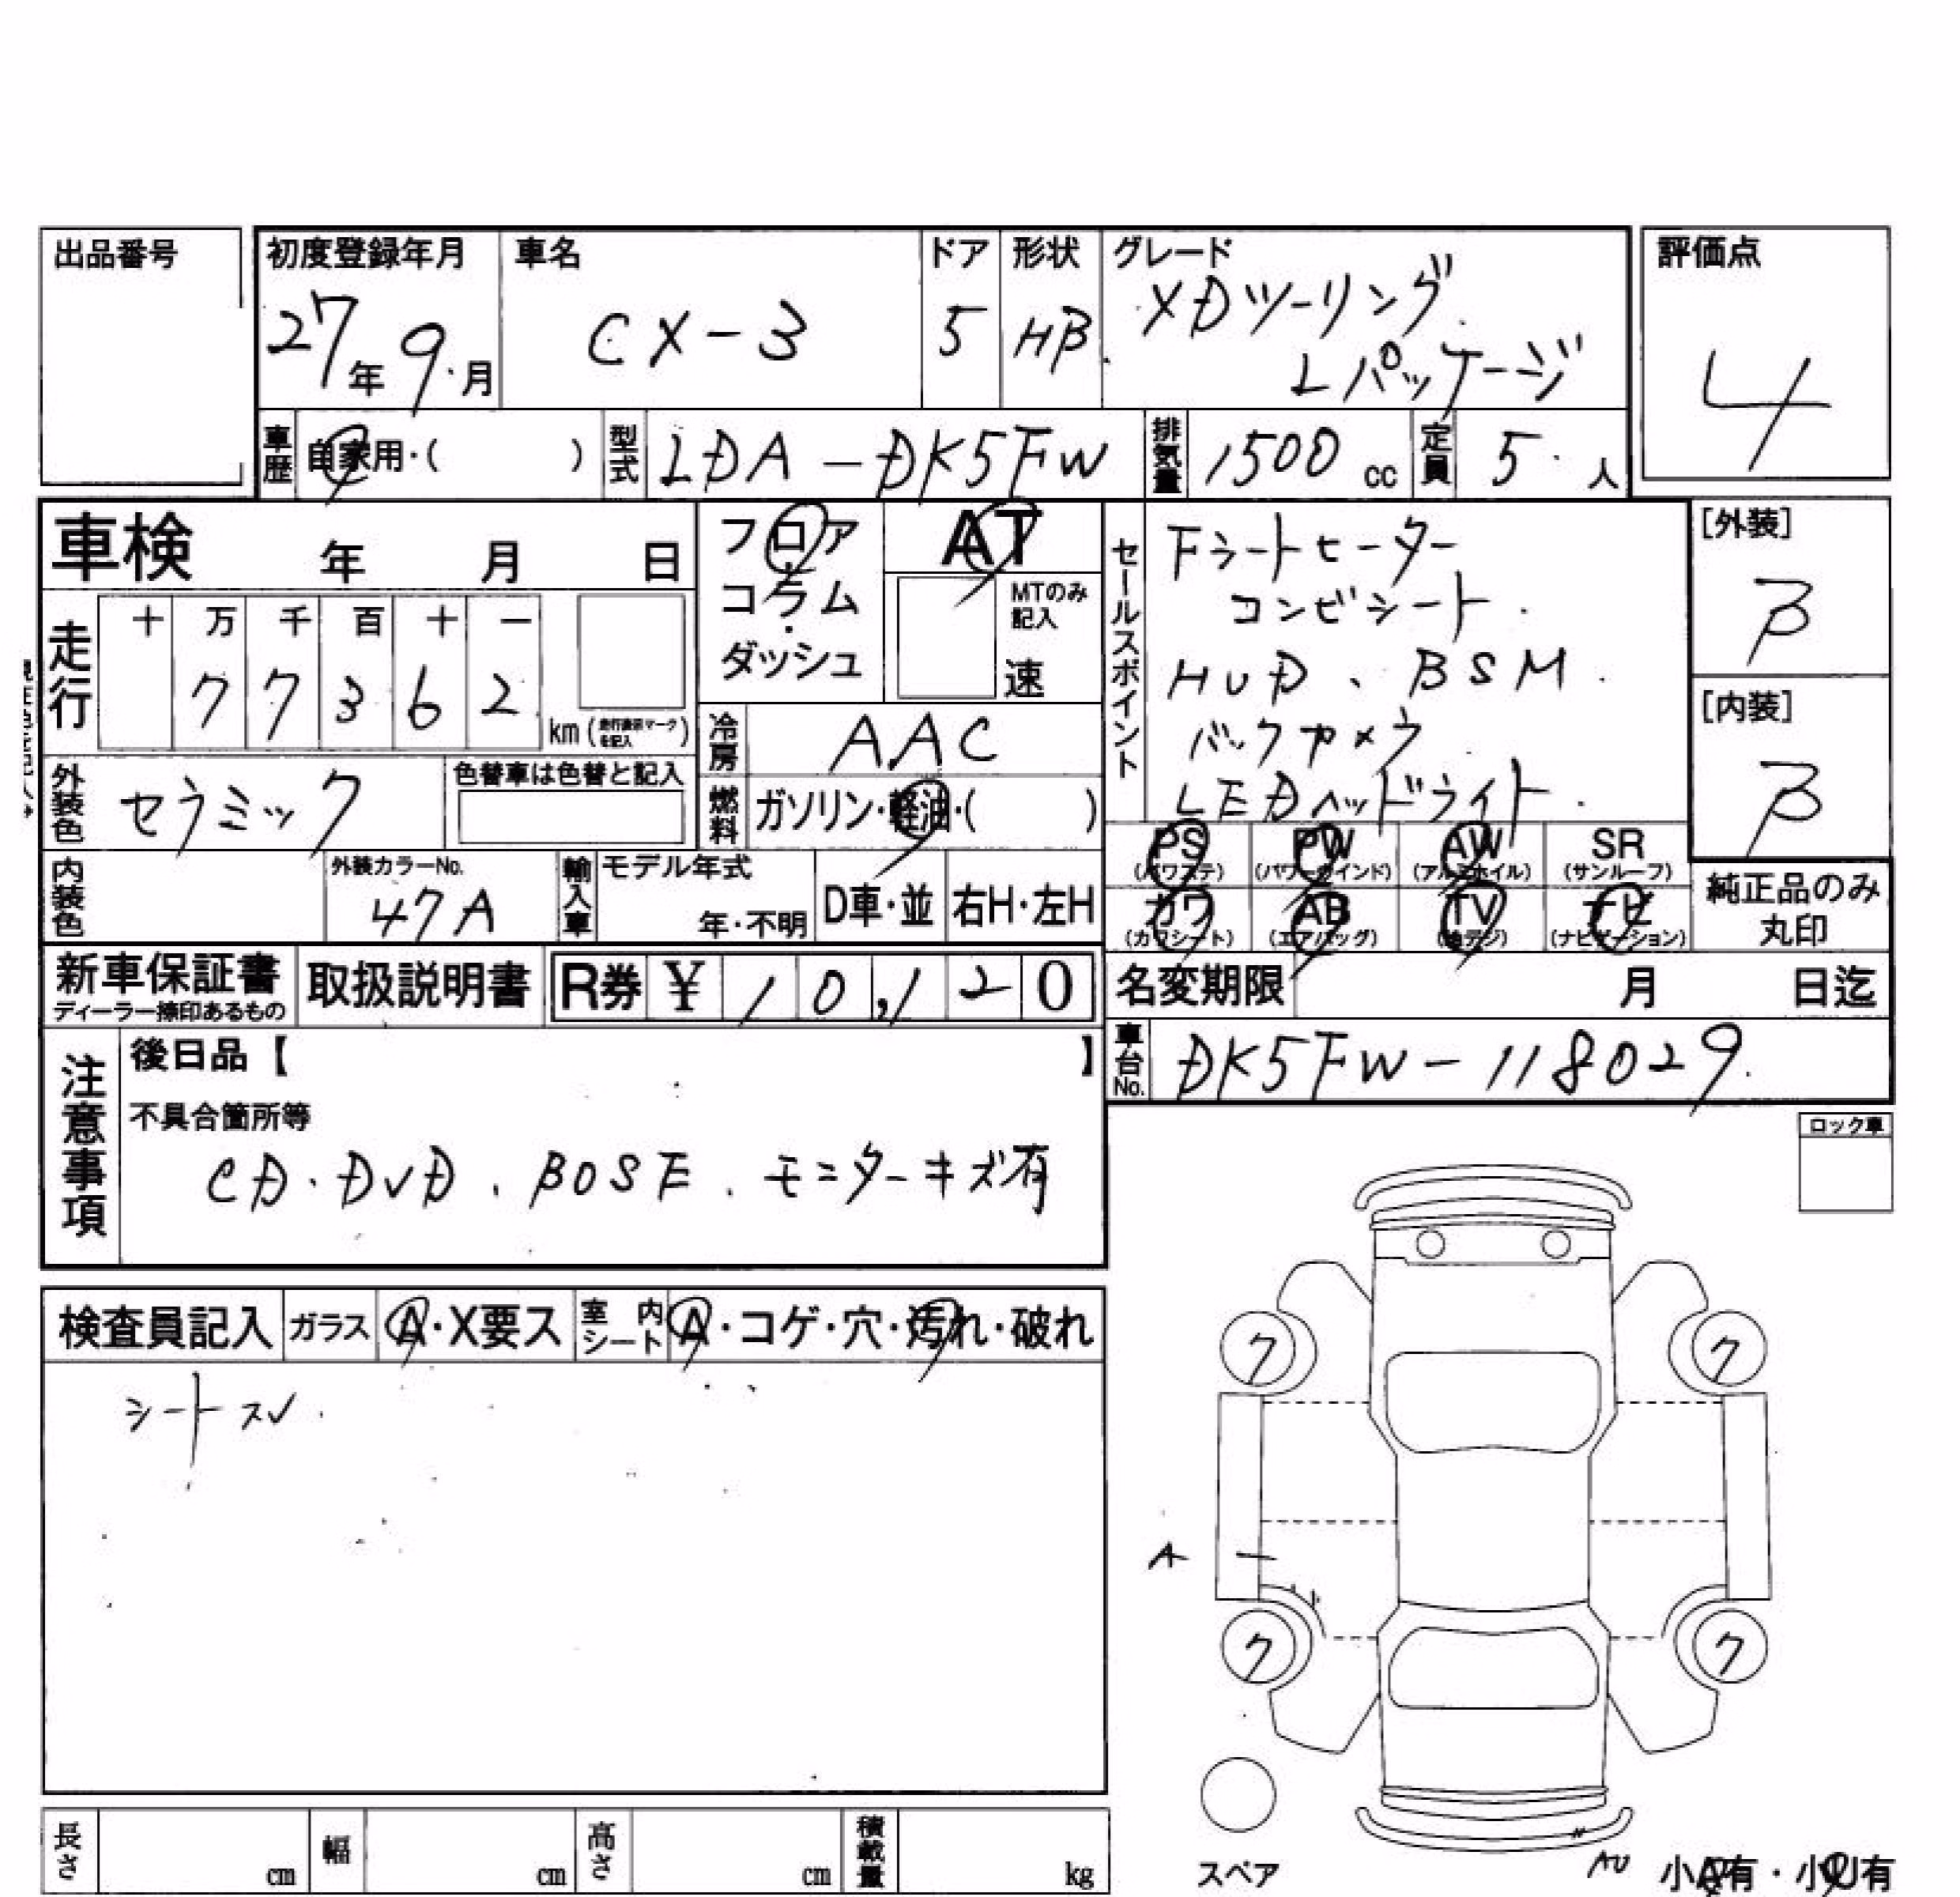 出品番号
初度登録年月 車名 ドア 形状 グレード 評価点
27年9月 CX-3 5 HB XDツーリング
Lパッケージ
4
車歴 自家用・( ) 型式 LDA-DK5FW 排気量 1500cc 定員 5人
車検 年 月 日
フロア
コラム
ダッシュ
AT
MTのみ
記入
速
走行 十 万 千 百 十 一
7 7 3 6 2 km(走行表示マークを記入)
冷房 AAC
外装色 セラミック 色替車は色替と記入
燃料 ガソリン・軽油・( )
内装色 外装カラーNo. 47A 輸入車 モデル年式 年・不明 D車・並 右H・左H
セールスポイント
Fシートヒーター
コンビシート
HUD、BSM
バックカメラ
LEDヘッドライト
[外装]
B
[内装]
B
PS PW AW SR
(パワステ) (パワーウインド) (アルミホイル) (サンルーフ)
カワ AB TV ナビ
(カワシート) (エアバッグ) (地デジ) (ナビゲーション)
純正品のみ
丸印
新車保証書
ディーラー捺印あるもの
取扱説明書 R券 ¥ 10,120
名変期限 月 日迄
車台No. DK5FW-118029
注意事項
後日品【 】
不具合箇所等
CD・DVD、BOSE、モニターキズ有
ロック車
検査員記入 ガラス A・X要ス 室内シート A・コゲ・穴・汚れ・破れ
シートスレ
ク ク
A
ク ク
スペア
AU
小A有・小U有
長さ cm 幅 cm 高さ cm 積載量 kg